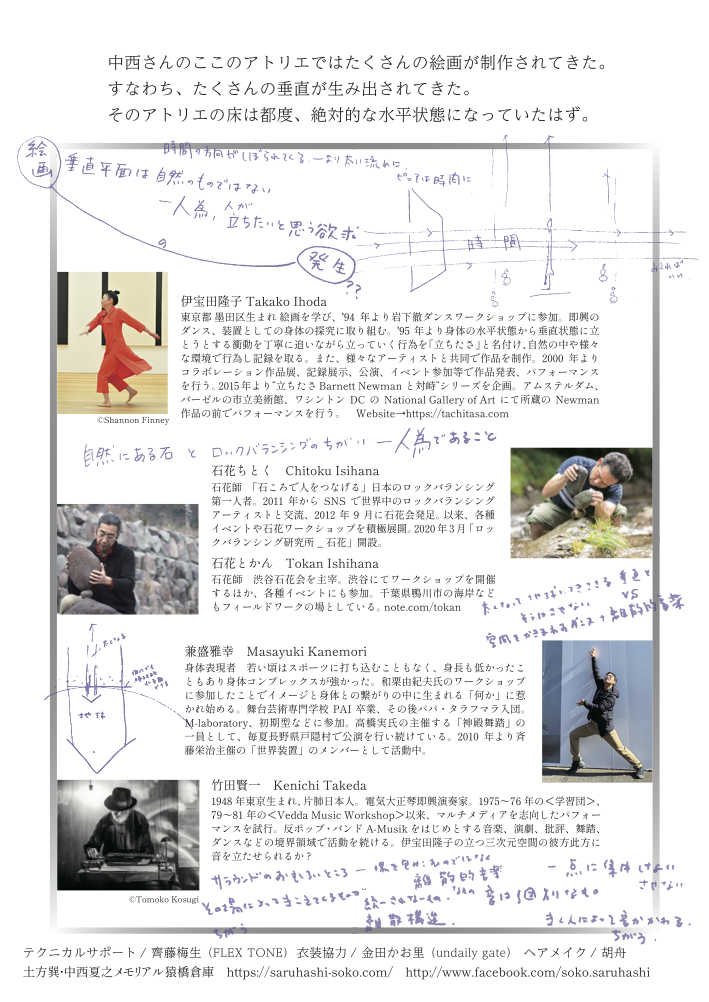 中西さんのここのアトリエではたくさんの絵画が制作されてきた。
すなわち、たくさんの垂直が生み出されてきた。
そのアトリエの床は都度、絶対的な水平状態になっていたはず。
絵画
時間の方向がしぼられてくる
垂直平面は自然のものではない
一人為、人が
立ちたいと思う欲求
発生
??
時間
伊宝田隆子 Takako Ihoda
東京都 墨田区生まれ 絵画を学び、'94 年より岩下徹ダンスワークショップに参加。即興の
ダンス、装置としての身体の探究に取り組む。'95 年より身体の水平状態から垂直状態に立
とうとする衝動を丁寧に追いながら立っていく行為を「立ちたさ」と名付け、自然の中や様々
な環境で行為し記録を取る。また、様々なアーティストと共同で作品を制作。2000 年より
コラボレーション作品展、記録展示、公演、イベント参加等で作品発表、パフォーマンス
を行う。2015年より"立ちたさ Barnett Newman と対峙"シリーズを企画。アムステルダム、
バーゼルの市立美術館、ワシントン DC の National Gallery of Art にて所蔵の Newman
作品の前でパフォーマンスを行う。 Website→https://tachitasa.com
©Shannon Finney
自然にある石とロックバランシングのちがい 一人為であること
石花ちとく Chitoku Isihana
石花師 「石ころで人をつなげる」日本のロックバランシング
第一人者。2011 年から SNS で世界中のロックバランシング
アーティストと交流、2012 年 9 月に石花会発足。以来、各種
イベントや石花ワークショップを積極展開。2020年3月「ロッ
クバランシング研究所 _ 石花」開設。
石花とかん Tokan Ishihana
石花師 渋谷石花会を主宰。渋谷にてワークショップを開催
するほか、各種イベントにも参加。千葉県鴨川市の海岸など
もフィールドワークの場としている。note.com/tokan
VS
地球
兼盛雅幸 Masayuki Kanemori
身体表現者 若い頃はスポーツに打ち込むこともなく、身長も低かったこ
ともあり身体コンプレックスが強かった。和栗由紀夫氏のワークショップ
に参加したことでイメージと身体との繋がりの中に生まれる「何か」に惹
かれ始める。舞台芸術専門学校 PAI 卒業、その後パパ・タラフマラ入団。
M-laboratory、初期型などに参加。高橋実氏の主催する「神殿舞踏」の
一員として、毎夏長野県戸隠村で公演を行い続けている。2010 年より斉
藤栄治主催の「世界装置」のメンバーとして活動中。
竹田賢一 Kenichi Takeda
1948 年東京生まれ、片肺日本人。電気大正琴即興演奏家。1975〜76 年の＜学習団＞、
79〜81 年の＜Vedda Music Workshop＞以来、マルチメディアを志向したパフォー
マンスを試行。反ポップ・バンド A-Musik をはじめとする音楽、演劇、批評、舞踏、
ダンスなどの境界領域で活動を続ける。伊宝田隆子の立つ三次元空間の彼方此方に
音を立たせられるか？
©Tomoko Kosugi
サラウンドのおもしろいところ
離散的音楽
一点に集中しない
させない
その場によってきこえてくるものが
ちがう
離散構造.
きく人によって音がかわる.
ちがう.
テクニカルサポート / 齊藤梅生（FLEX TONE）衣装協力 / 金田かお里（undaily gate） ヘアメイク / 胡舟
土方巽・中西夏之メモリアル猿橋倉庫 https://saruhashi-soko.com/ http://www.facebook.com/soko.saruhashi